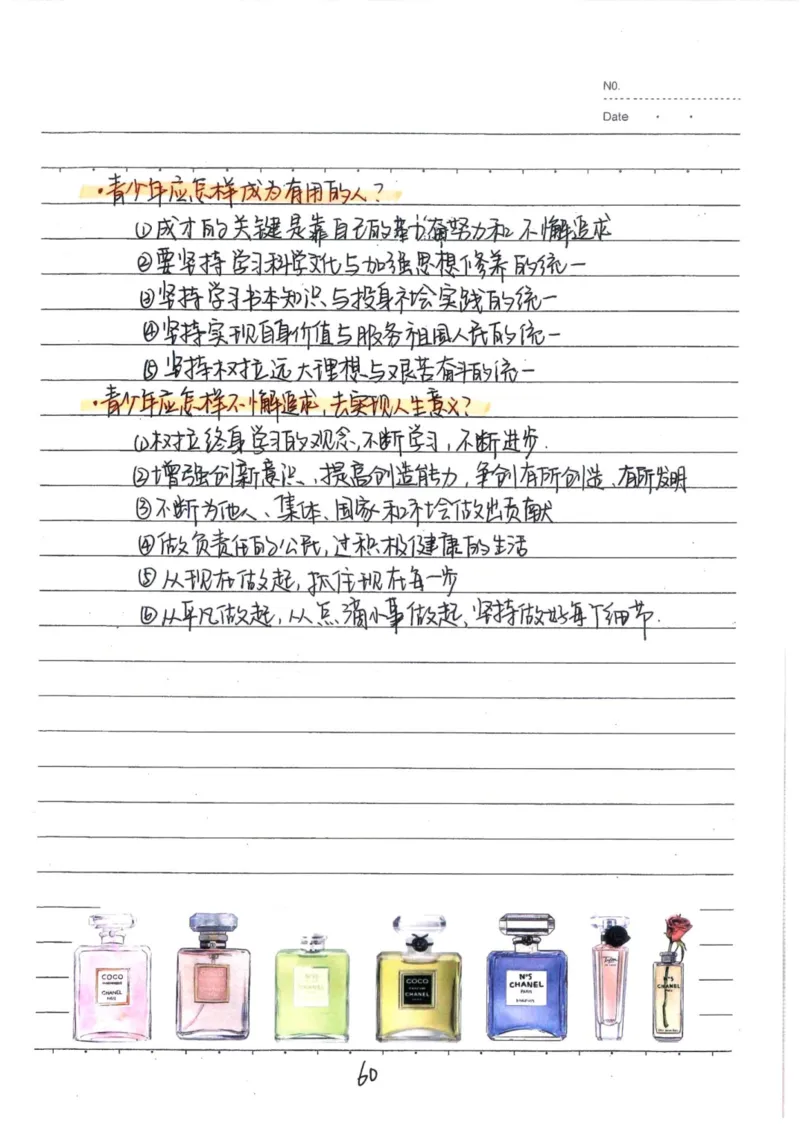 NO.
Date
·青少年应怎样成为有用的人?
①成才的关键是靠自己的奋努力和不懈追求
②要坚持学习科学文化与加强思想修养的统一
③坚持学习书本知识与投身社会实践的统一
④坚持实现自身价值与服务祖国人民的统一
⑤坚持树立远大理想与艰苦奋斗的统一
·青少年应怎样不懈追求,去实现人生意义?
①树立终身学习的观念,不断学习,不断进步.
②增强创新意识、提高创造能力,争创有所创造、有所发明
③不断为他人、集体、国家和社会做出贡献
④做负责任的公民,过积极健康的生活
⑤从现在做起,抓住现在每一步
⑥从平凡做起,从点滴小事做起,坚持做好每个细节.
COCO
CHANEL
PARIS
N°5
CHANEL
COCO
CHANEL
N°5
CHANEL
PARIS
N°5
CHANEL
60